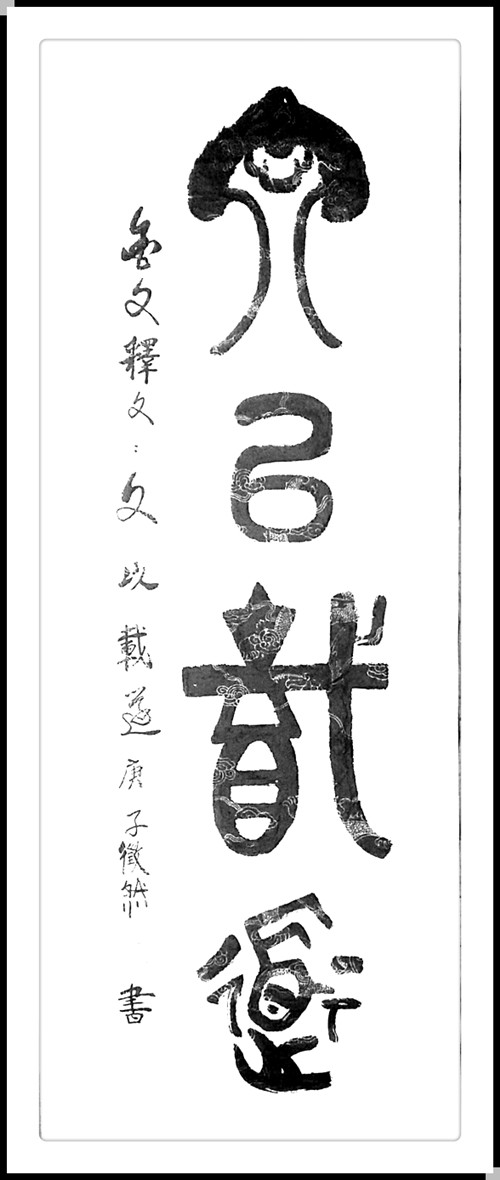 文以載道
金文釋文：文以載道 庚子 然 書